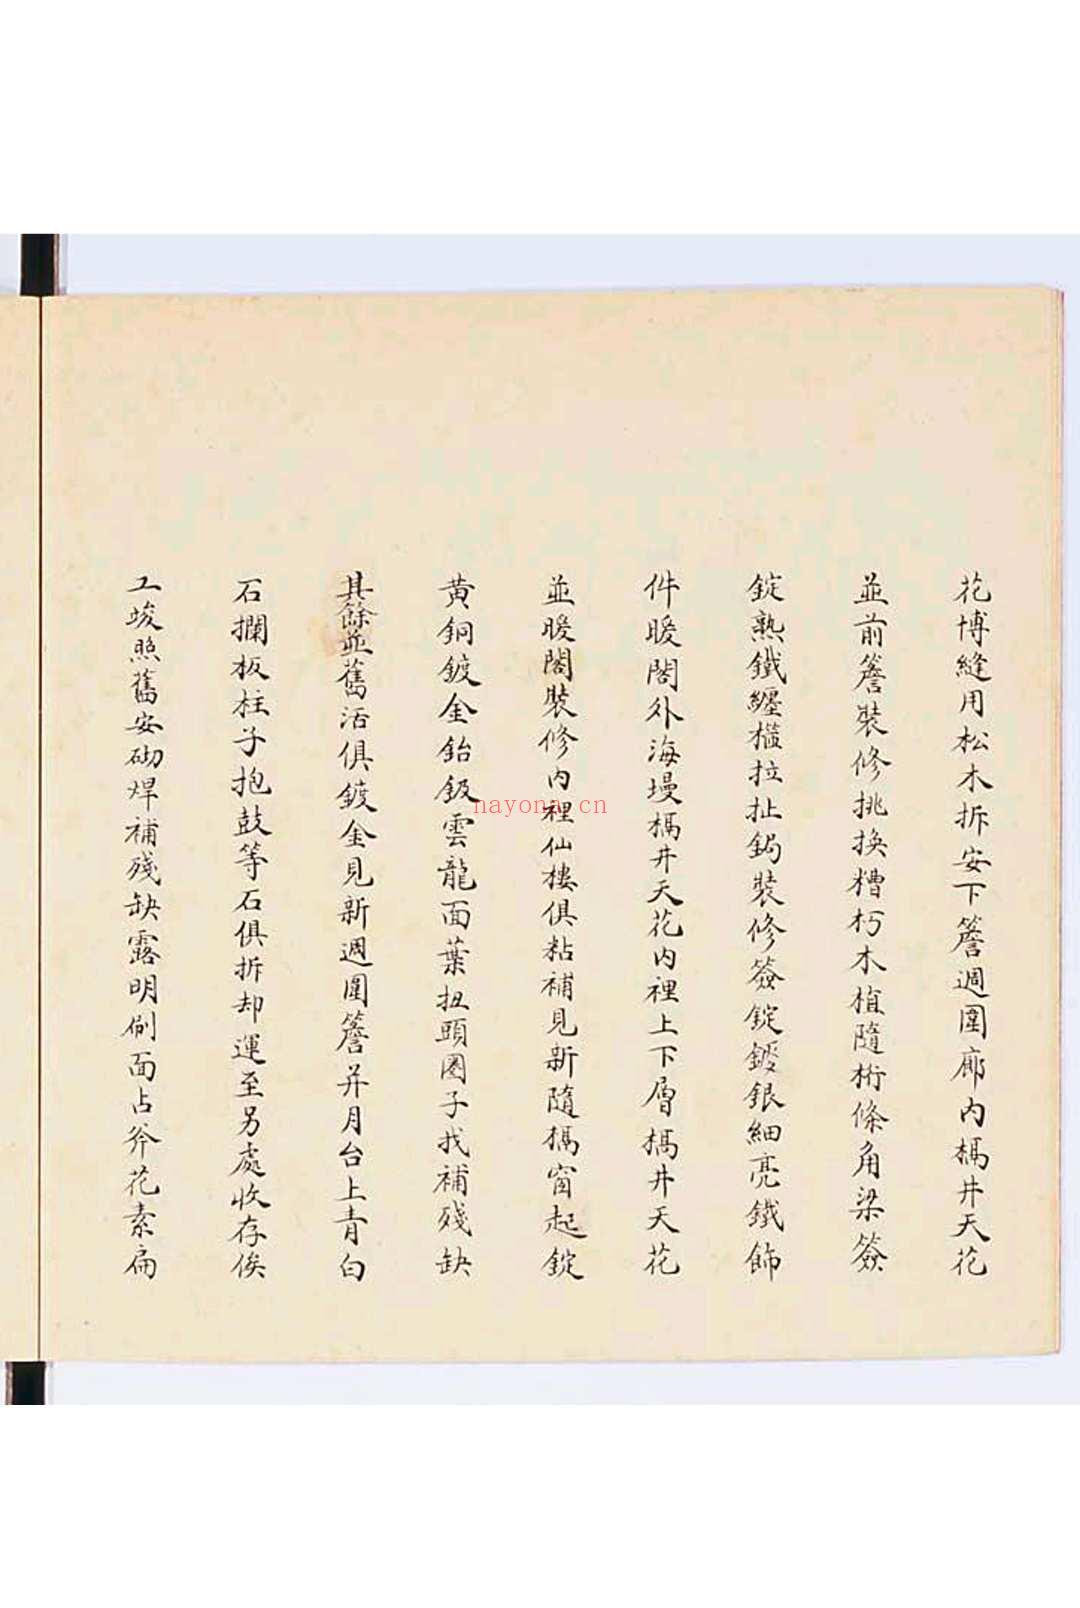 花博縫用松木拆安下簷週圍廊內槅井天花
並前簷裝修挑換糟朽木植隨桁條角梁簽
錠熟鐵纏檻拉扯鋦裝修簽錠鋄銀細亮鐵飾
件暖閣外海墁槅井天花內裡上下層槅井天花
並暖閣裝修內裡仙樓俱粘補見新隨槅窗起錠
黃銅鍍金鈶鈒雲龍面葉扭頭圈子找補殘缺
其餘並舊活俱鍍金見新週圍簷并月台上青白
石攔板柱子抱鼓等石俱拆卸運至另處收存俟
工竣照舊安砌焊補殘缺露明側面占斧花素扁
nayona.cn